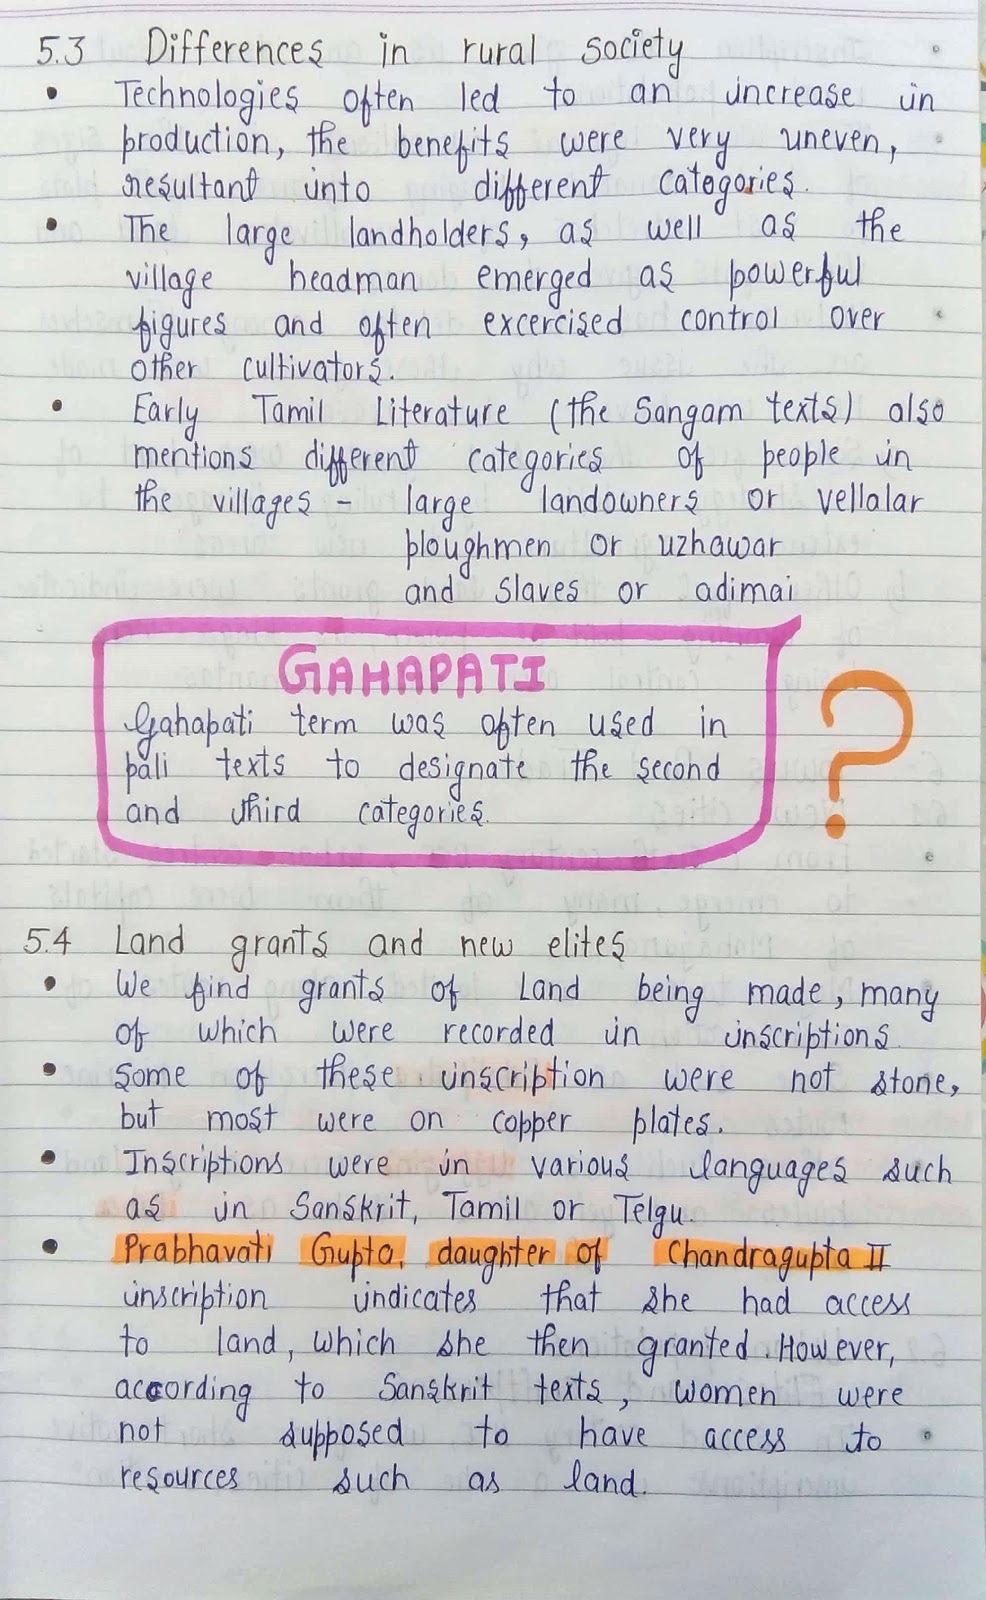 5.3 Differences in rural society
• Technologies often led to an increase in
production, the benefits were very uneven,
resultant into different categories.
• The large landholders, as well as the
village headman emerged as powerful
figures and often excercised control over
other cultivators.
• Early Tamil Literature (the Sangam texts) also
mentions different categories of people in
the villages - large landowners or vellalar
ploughmen or uzhawar
and slaves or adimai
GAHAPATI
Gahapati term was often used in
pali texts to designate the second
and third categories.
?
5.4 Land grants and new elites
• We find grants of Land being made, many
of which were recorded in inscriptions.
• Some of these inscription were not stone,
but most were on copper plates.
• Inscriptions were in various languages such
as in Sanskrit, Tamil or Telgu.
• Prabhavati Gupta, daughter of Chandragupta II
inscription indicates that she had access
to land, which she then granted. However,
according to Sanskrit texts, women were
not supposed to have access to
resources such as land.